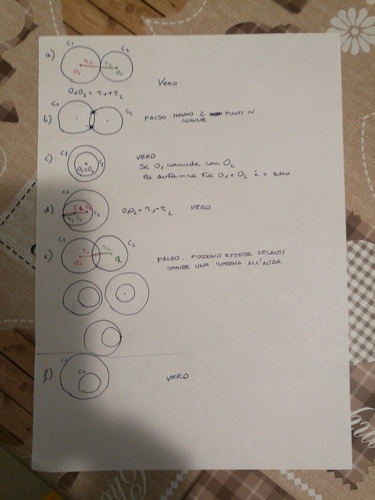 a) C1 C2
r1 r2
O1 O2
VERO
O1O2 = r1 + r2
b) C1 C2
FALSO HANNO 2 PUNTI IN
COMUNE
c) C1 C2
O1 O2
VERO
Se O1 coincide con O2
la distanza tra O1 e O2 è = zero
d) C1 C2
O1O2 = r1 - r2 VERO
e) C1 C2
r1 r2
O1 O2
FALSO, POSSONO ESSERE SECANTI
OPPURE UNA INTERNA ALL'ALTRA
f) C1
C2
VERO